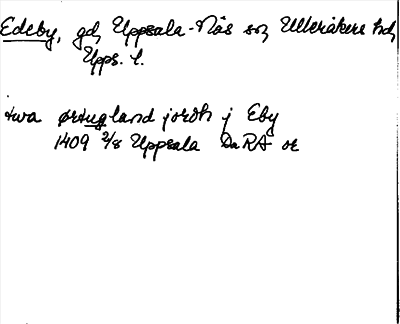 Edeby, gd, Uppsala-Näs sn, Ulleråkers hd,
Upps. l.
twa ørtugland jordh j Eby
1409 2/8 Uppsala DaRA or